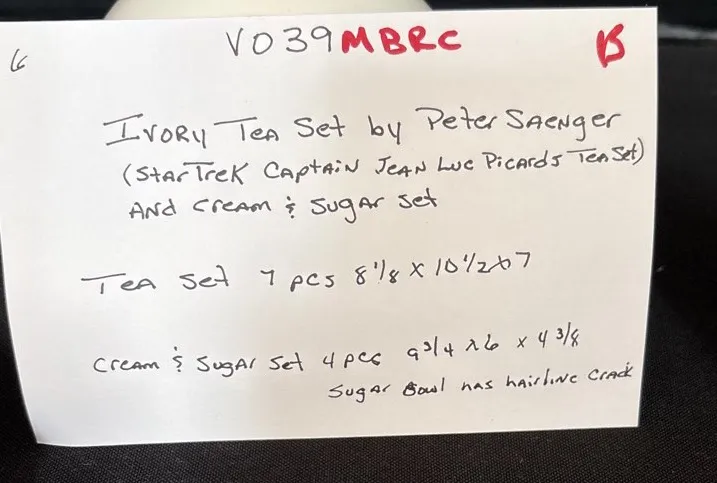 VO39MBRC B
Ivory Tea Set by Peter Saenger
(Star Trek Captain Jean Luc Picards Tea Set)
And Cream & Sugar Set
Tea Set 7 pcs 8 1/8 x 10 1/2 x 7
Cream & Sugar Set 4 pcs 9 3/4 x 6 x 4 3/8
Sugar Bowl has hairline crack